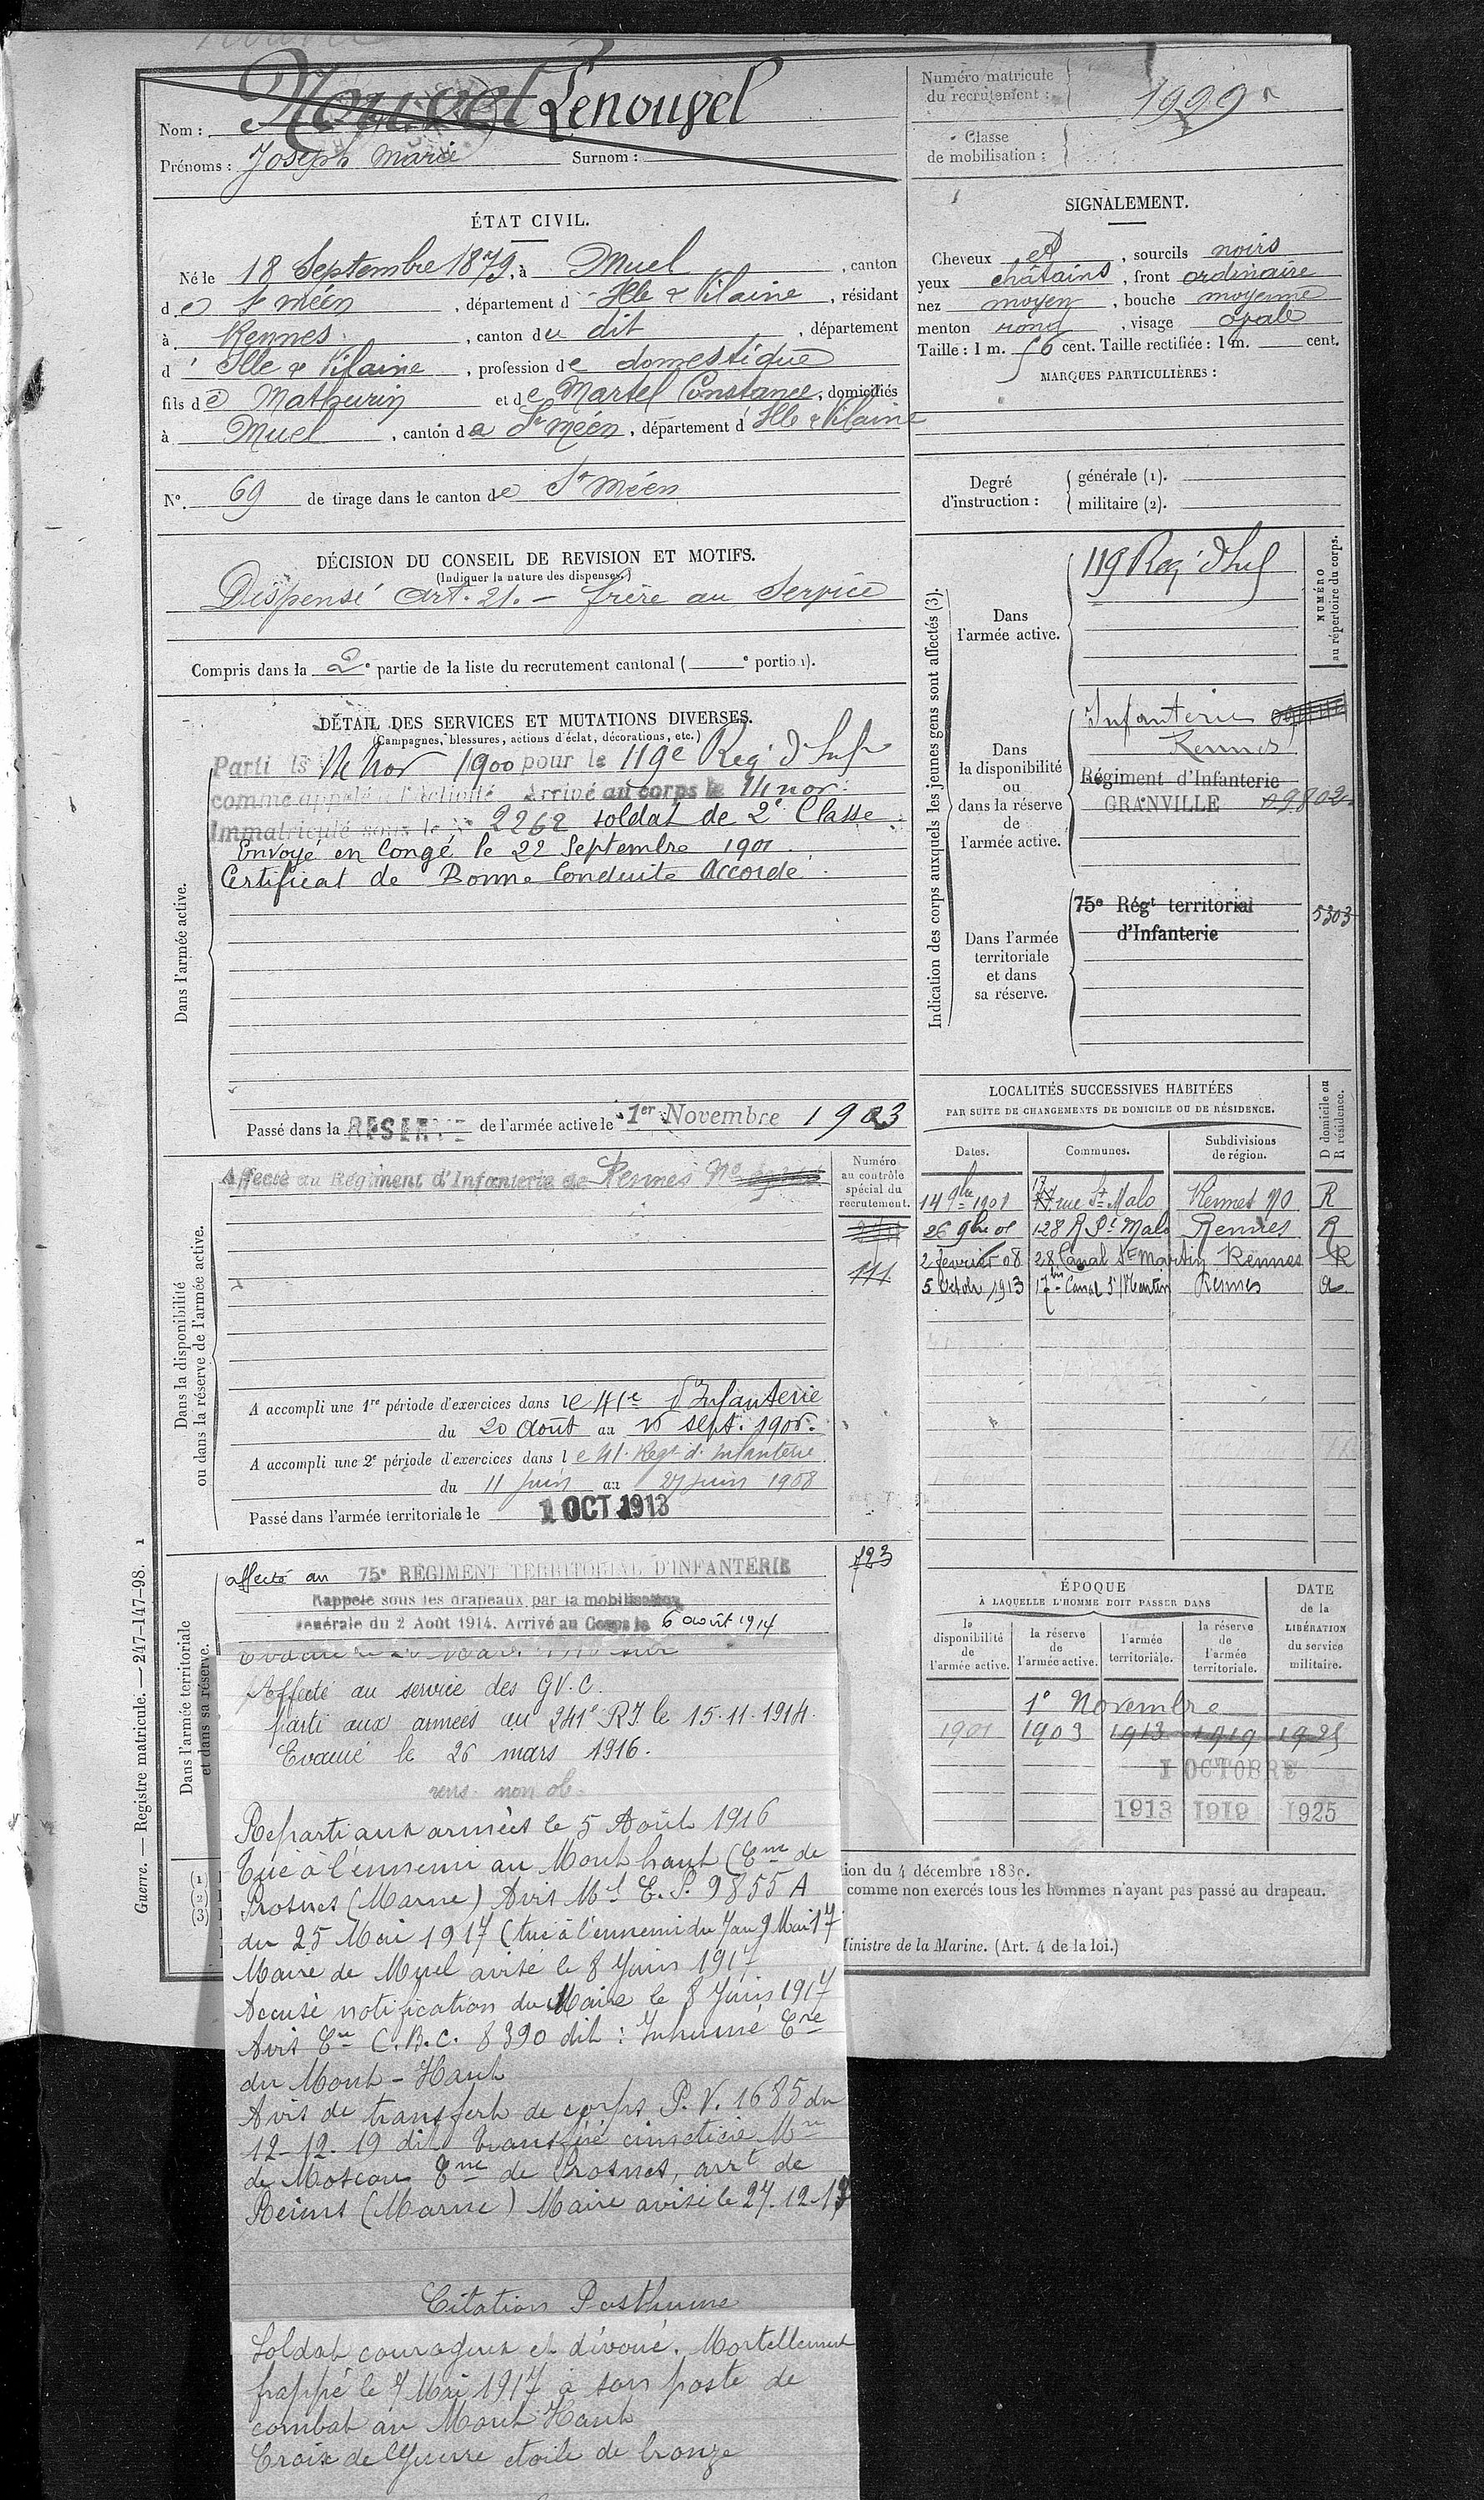 Nom : Nouvel Lenouvel
Prénoms : Joseph Marie Surnom :
Numéro matricule
du recrutement : 1999
Classe
de mobilisation :
ÉTAT CIVIL.
Né le 18 Septembre 1879, à Muel, canton
de St méen, département d'Ille & Vilaine, résidant
à Rennes, canton du dit, département
d'Ille & Vilaine, profession de domestique
fils de Mathurin et de Martel Constance, domiciliés
à Muel, canton de St Méen, département d'Ille & Vilaine
No. 69 de tirage dans le canton de St Méen
SIGNALEMENT.
Cheveux et, sourcils noirs
yeux châtains, front ordinaire
nez moyen, bouche moyenne
menton rond, visage ovale
Taille : 1 m. 56 cent. Taille rectifiée : 1 m. cent.
MARQUES PARTICULIÈRES :
Degré
d'instruction :
générale (1).
militaire (2).
DÉCISION DU CONSEIL DE REVISION ET MOTIFS.
(Indiquer la nature des dispenses.)
Dispensé Art. 21. - frère au Service
Compris dans la 2e partie de la liste du recrutement cantonal ( e portion).
DÉTAIL DES SERVICES ET MUTATIONS DIVERSES.
(Campagnes, blessures, actions d'éclat, décorations, etc.)
Dans l'armée active.
Parti le 14 Nov 1900 pour le 119e Reg d'Inf
comme appelé à l'activité Arrivé au corps le 14 nov.
Immatriculé sous le No 2262 soldat de 2e Classe
Envoyé en Congé le 22 Septembre 1901.
Certificat de Bonne Conduite Accordé.
Passé dans la RESERVE de l'armée active le 1er Novembre 1903
Indication des corps auxquels les jeunes gens sont affectés (3).
NUMÉRO
au répertoire du corps.
Dans
l'armée active.
119 Reg' d'Inf
Dans
la disponibilité
ou
dans la réserve
de
l'armée active.
Infanterie
Rennes
Régiment d'Infanterie
GRANVILLE 09802
Dans l'armée
territoriale
et dans
sa réserve.
75e Régt territorial
d'Infanterie
5303
Dans la disponibilité
ou dans la réserve de l'armée active.
Affecté au Régiment d'Infanterie de Rennes No
Numéro
au contrôle
spécial du
recrutement.
111
A accompli une 1re période d'exercices dans le 41e d'Infanterie
du 20 Août au sept.
A accompli une 2e période d'exercices dans le 41. Regt d'Infanterie
du 11 Juin au 27 juin 1908
Passé dans l'armée territoriale le 1 OCT 1913
LOCALITÉS SUCCESSIVES HABITÉES
PAR SUITE DE CHANGEMENTS DE DOMICILE OU DE RÉSIDENCE.
Dates. Communes. Subdivisions
de région.
D domicile ou
R résidence.
14 9bre 1901 17 rue St Malo Rennes R
26 9bre 128 R St Malo Rennes R
2 fevrier 08 28 Canal St Martin Rennes R
5 Octobre 1913 17bis Canal St Martin Rennes
Dans l'armée territoriale
et dans sa réserve.
affecté au 75e REGIMENT TERRITORIAL D'INFANTERIE
723
Rappelé sous les drapeaux par la mobilisation
générale du 2 Août 1914. Arrivé au Corps le 6 août 1914
Affecté au service des GV.C.
Parti aux armées au 241e R.I. le 15.11.1914.
Evacué le 26 mars 1916.
rens. non ob.
Reparti aux armées le 5 Août 1916
Tué à l'ennemi au Mont haut (Cne de
Prosnes (Marne) Avis Mel E.S. 9855 A
du 25 Mai 1917 (tué à l'ennemi du 7 au 9 Mai 17
Maire de Muel avisé le 8 Juin 1917
Accusé notification du Maire le 8 Juin 1917
Avis C.B.C. 8390 dit : Inhumé Cne
du Mont-Haut
Avis de transfert de corps P.V. 1685 du
12-12-19 dit transféré cimetière Mre
de Moscou Cne de Prosnes, arrt de
Reims (Marne) Maire avisé le 27.12.19
Citation Posthume
Soldat courageux et dévoué. Mortellement
frappé le 7 Mai 1917 à son poste de
combat au Mont Haut
Croix de Guerre étoile de bronze
ÉPOQUE
À LAQUELLE L'HOMME DOIT PASSER DANS
DATE
de la
LIBÉRATION
du service
militaire.
la
disponibilité
de
l'armée active.
la réserve
de
l'armée active.
l'armée
territoriale.
la réserve
de
l'armée
territoriale.
1e Novembre
1901 1903 1913 1919 1925
1 OCTOBRE
1913 1919 1925
Guerre. — Registre matricule. — 247-147-98. 1
(1)
(2)
(3)
ion du 4 décembre 1889.
comme non exercés tous les hommes n'ayant pas passé au drapeau.
Ministre de la Marine. (Art. 4 de la loi.)